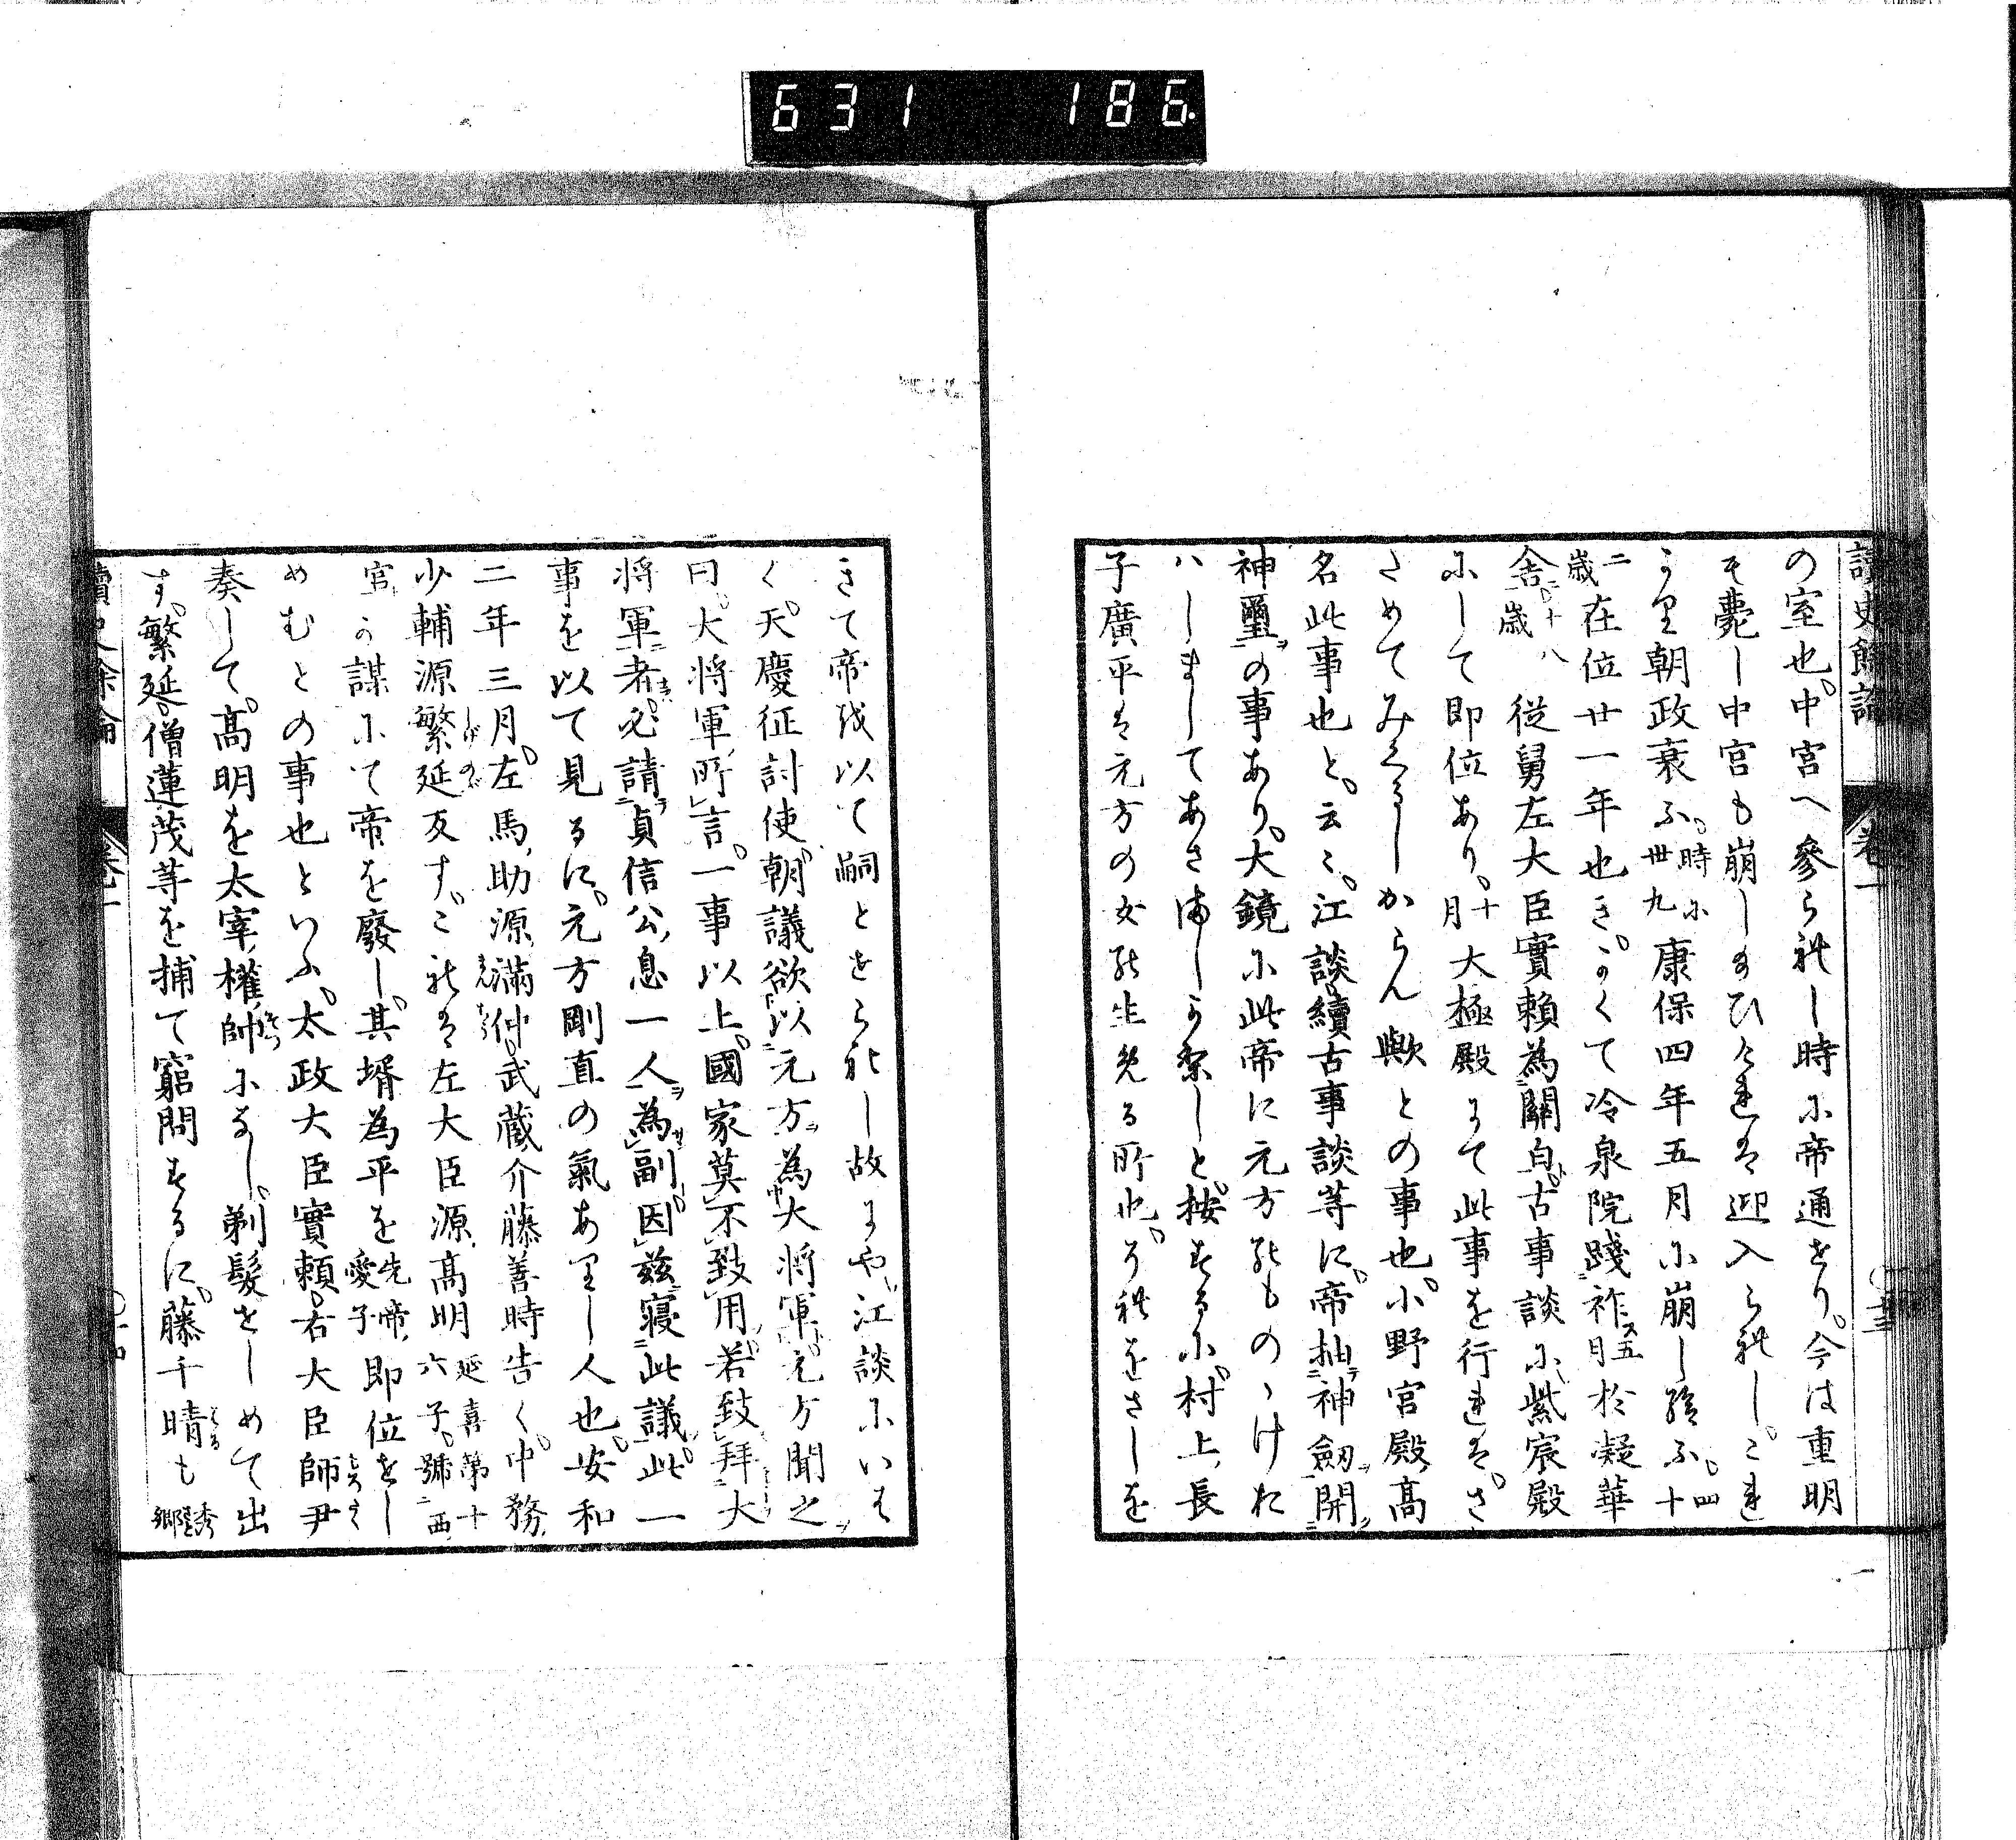 631 186.
讀史餘論 卷一
の室也。中宮へ參られし時に帝通せり。今は重明
も薨し中宮も崩しまひければ迎入られし。これ
より朝政衰ふ。時に卅九康保四年五月に崩し給ふ。四十
二歳在位廿一年也き。かくて冷泉院踐祚五月於凝華
舎十八歳 從舅左大臣實賴為關白。古事談に紫宸殿
にして即位あり。十月大極殿にて此事を行れば。さ
ためてみくるしからん歟との事也。小野宮殿高
名此事也と。云々。江談續古事談等に。帝抽神劔開
神璽の事あり。大鏡に此帝に元方のものゝけお
ハしましてあさましかりしと。按するに。村上長
子廣平は元方の女の生める所也。それをさしを
きて帝を以て嗣とせられし故にや。江談にいは
く。天慶征討使。朝議欲以元方為大将軍。元方聞之
曰。大将軍所言。一事以上。國家莫不致用。若致拜大
将軍者。必請貞信公息一人為副。因茲寢此議。此一
事を以て見るに。元方剛直の氣ありし人也。安和
二年三月。左馬助源滿仲。武蔵介藤善時告く。中務
少輔源繁延反す。これは左大臣源高明延喜第十六子。號西
宮か謀にて帝を廢し。其壻為平を先帝愛子即位せし
めむとの事也といふ。太政大臣實賴。右大臣師尹
奏して。高明を太宰權帥になし。剃髮せしめて出
す。繁延。僧蓮茂等を捕て窮問するに。藤千晴も秀郷
讀史餘論 卷一